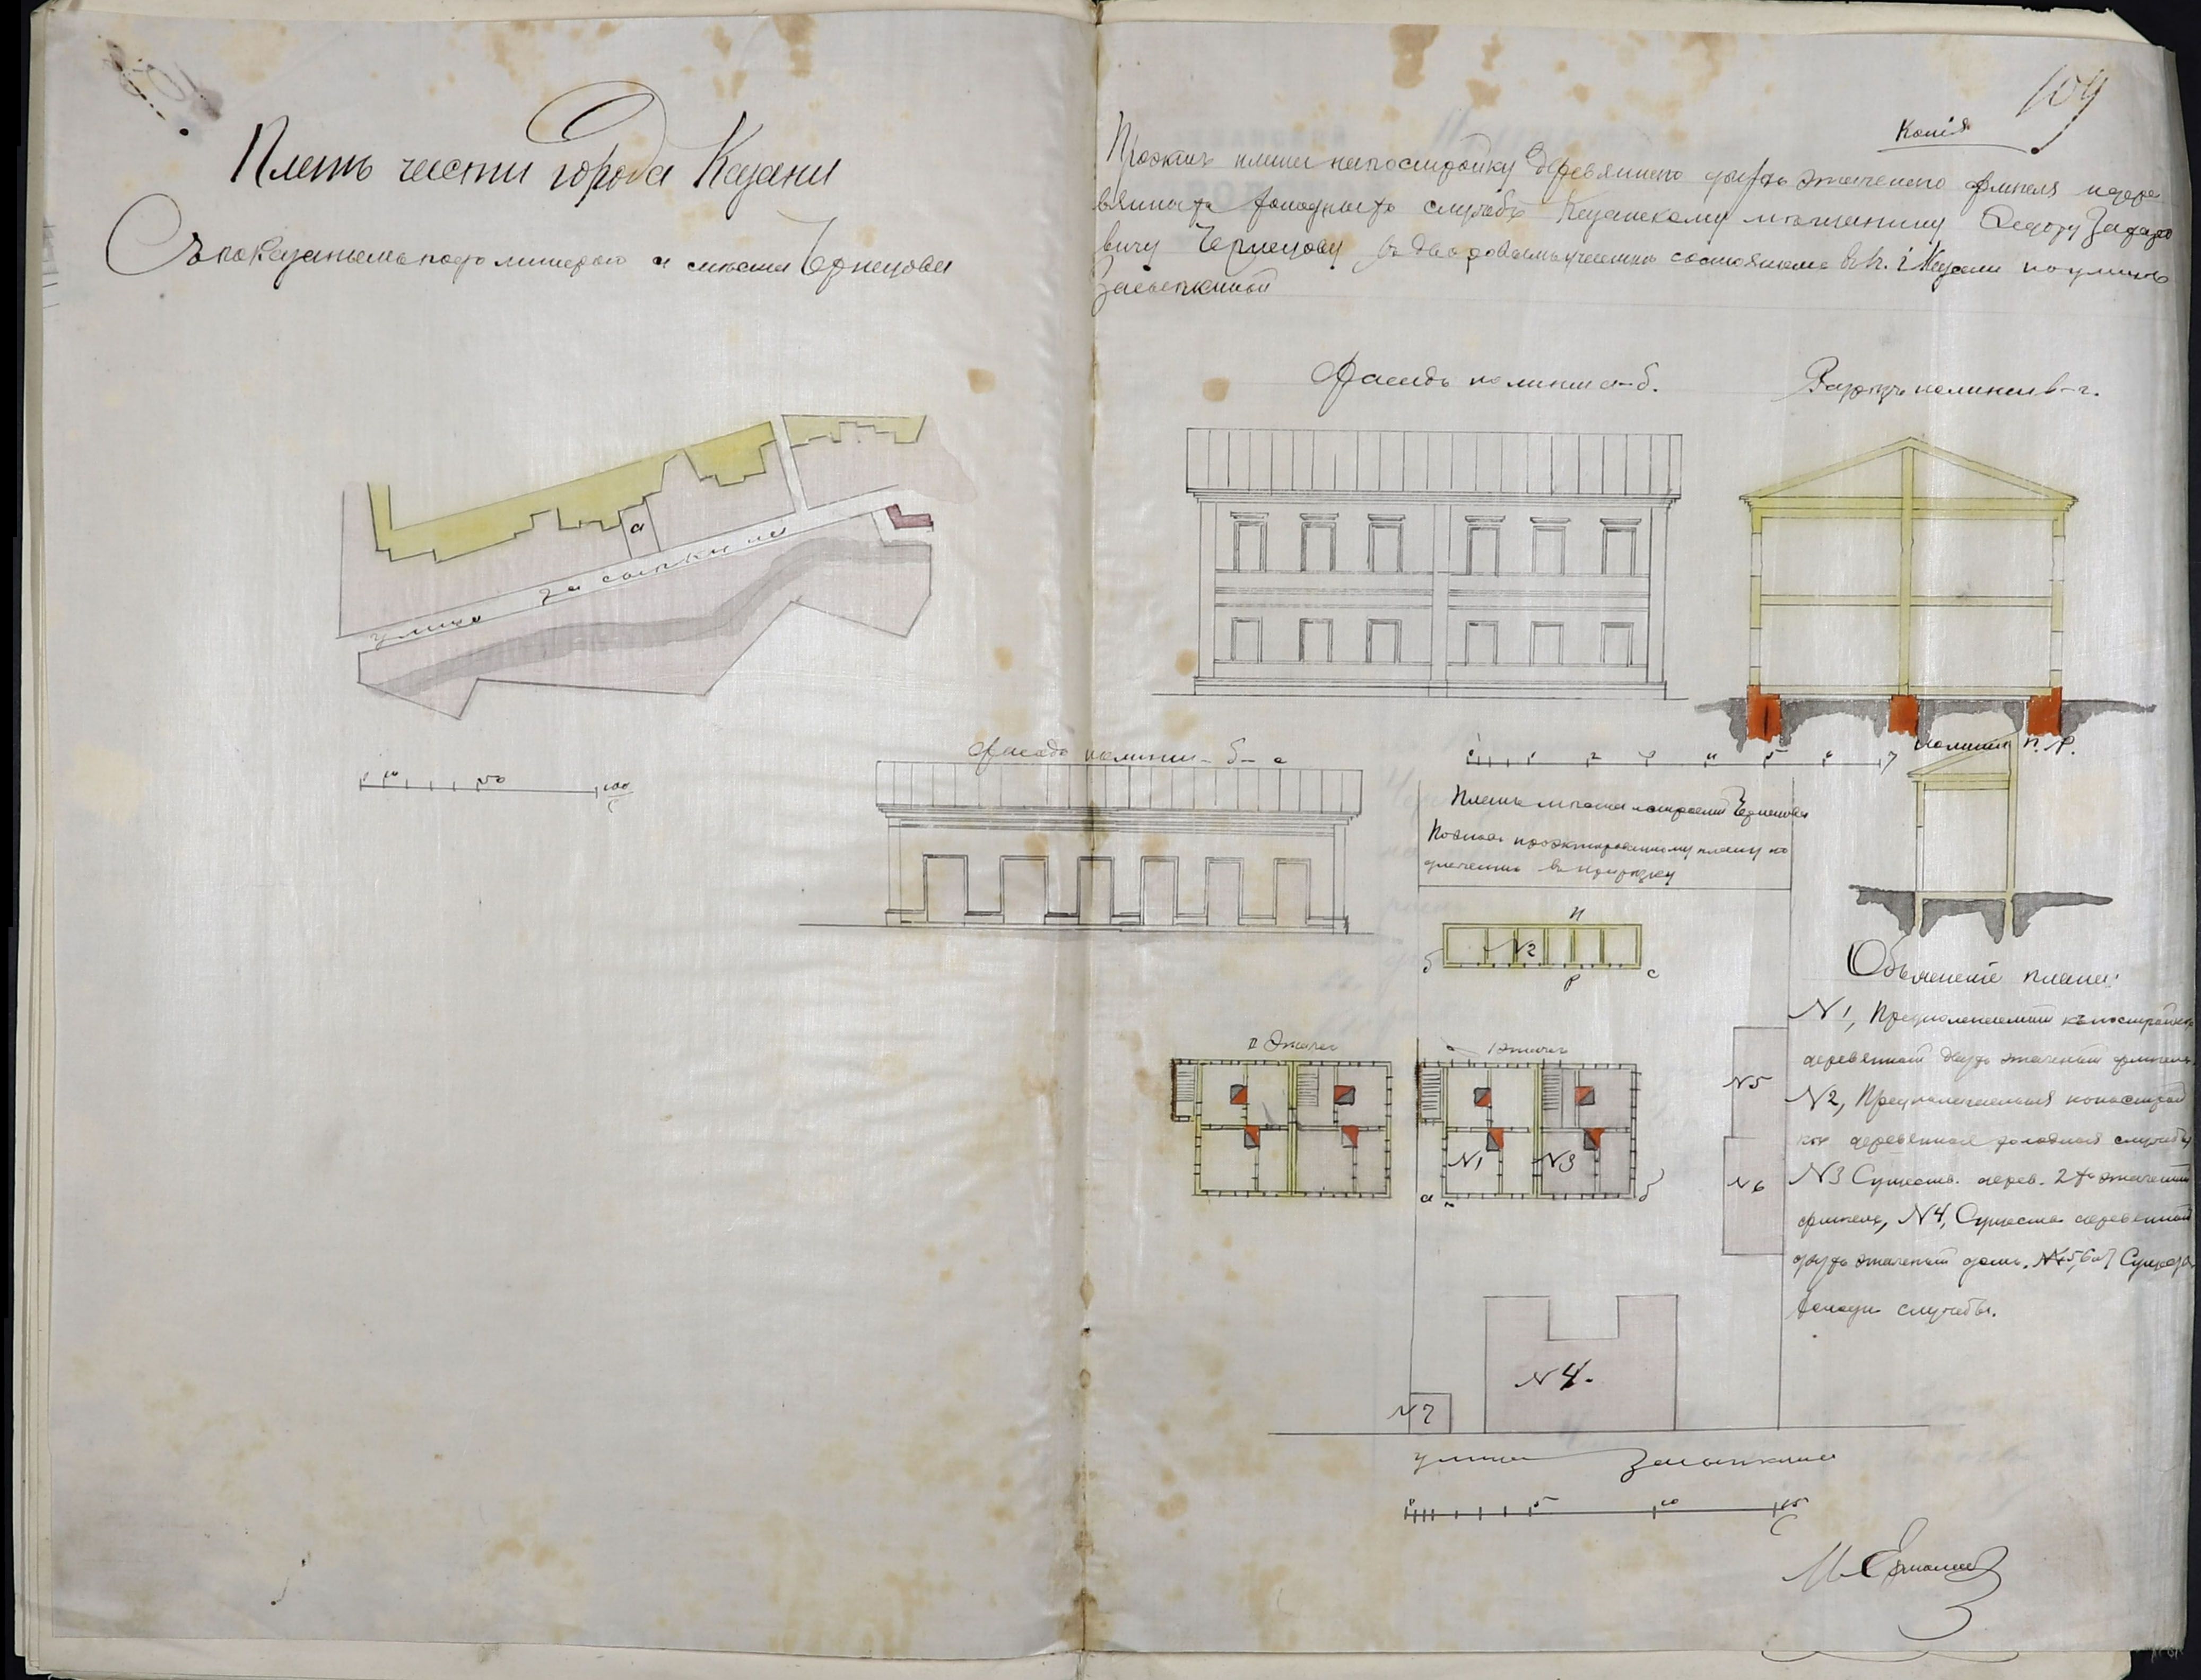 Планъ части города Казани
Съ показаніемъ подъ литерою а мѣста Чернецова
а
улица Засыпкина
10 50 100
с
104
Копія
Проэктъ плана на постройку деревяннаго двухъ этажнаго флигеля и дере
вянныхъ холодныхъ службъ Казанскому мѣщанину Федору Захаро
вичу Чернецову въ дворовомъ участкѣ состоящемъ въ г. Казани по улицѣ
Засыпкиной
Фасадъ по линіи а-б.
Разрѣзъ по линіи в-г.
Фасадъ по линіи б-с
1 2 3 4 5 6 7
по линіи п. р.
Планъ мѣста и строенія Чернецова
проэктированному плану
п
б N2 с
р
II Этажъ
I этажъ
N1 N3
а б
N5
N6
Объясненіе плана:
N1, Предполагаемый къ постройкѣ
деревянный двухъ этажный флигель
N2, Предполагаемыя къ построй
кѣ деревянныя холодныя службы
N3 Существ. дерев. 2хъ этажный
флигель, N4, Существ. деревянный
двухъ этажный домъ. N5, 6 и 7
службы.
N4.
N7
улица Засыпкина
5 10 15
с